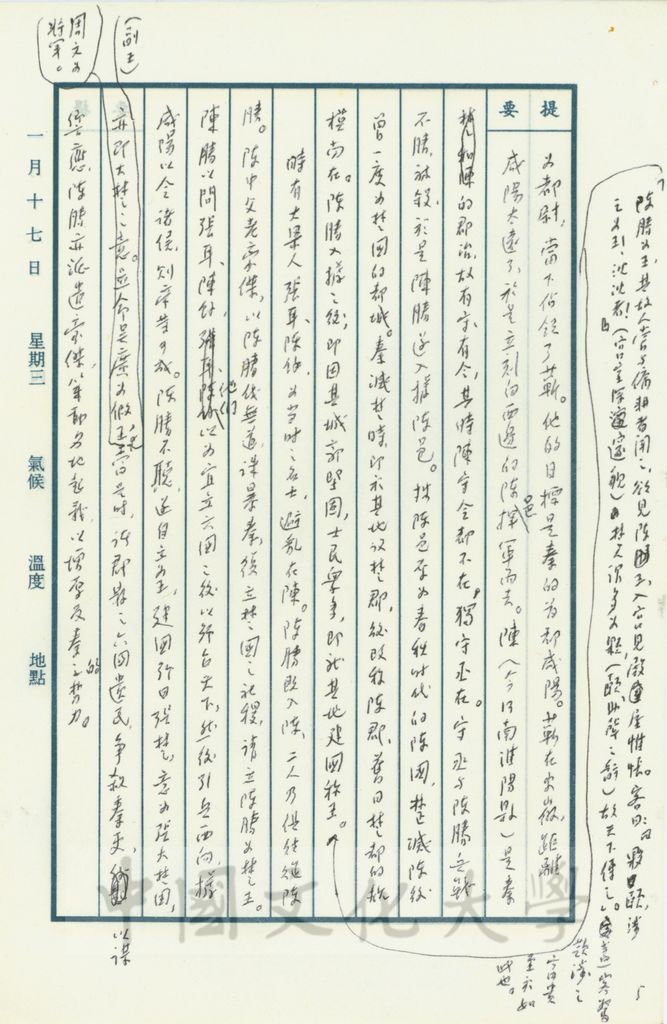 陳勝為王,其故人嘗與傭耕者聞之,欲見陳勝王,入宮見殿屋帷帳。客曰:夥頤,涉
之為王,沈沈者!(宮室深邃貌)楚人謂多為夥(頤助聲之辭)故天下傳之。
富貴
至於如
此也。
提
要
為都尉,當下佔領了蘄。他的目標是秦的首都咸陽。蘄在安徽,距離
咸陽太遠了,於是立刻向西邊的陳邑揮軍而去。陳(今河南淮陽縣)是秦
的郡治,故有守有令,其時陳守令都不在,獨守丞在。守丞與陳勝兵戰
不勝,被殺,於是陳勝遂入據陳邑。按陳邑原為春秋時代的陳國,楚滅陳後
曾一度為楚國的都城。秦滅楚時,即於其地設楚郡,後改稱陳郡,舊日楚都的規
模尚在。陳勝入據之後,即因其城郭堅固,士民眾多,即於其地建國稱王。
時有大梁人張耳、陳餘,為當時之名士,避亂在陳。陳勝既入陳,二人乃往從陳
勝。陳中父老豪傑,以陳勝伐無道,誅暴秦,復立楚國之社稷,請立陳勝為楚王。
陳勝以問張耳、陳餘,他們以為宜立六國之後以號召天下,然後引兵西向,據
咸陽以令諸侯,則帝業可成。陳勝不聽,遂自立為王,建國號曰張楚,意為張大楚國,
亦即大楚之意。並命吳廣為假王(副王)當是時,諸郡縣之六國遺民,爭殺秦吏,以謀
響應,陳勝亦派遣豪傑,分赴各地起義,以增厚反秦的勢力。
周文為
將軍。
一月十七日 星期三 氣候 溫度 地點
中國文化大學